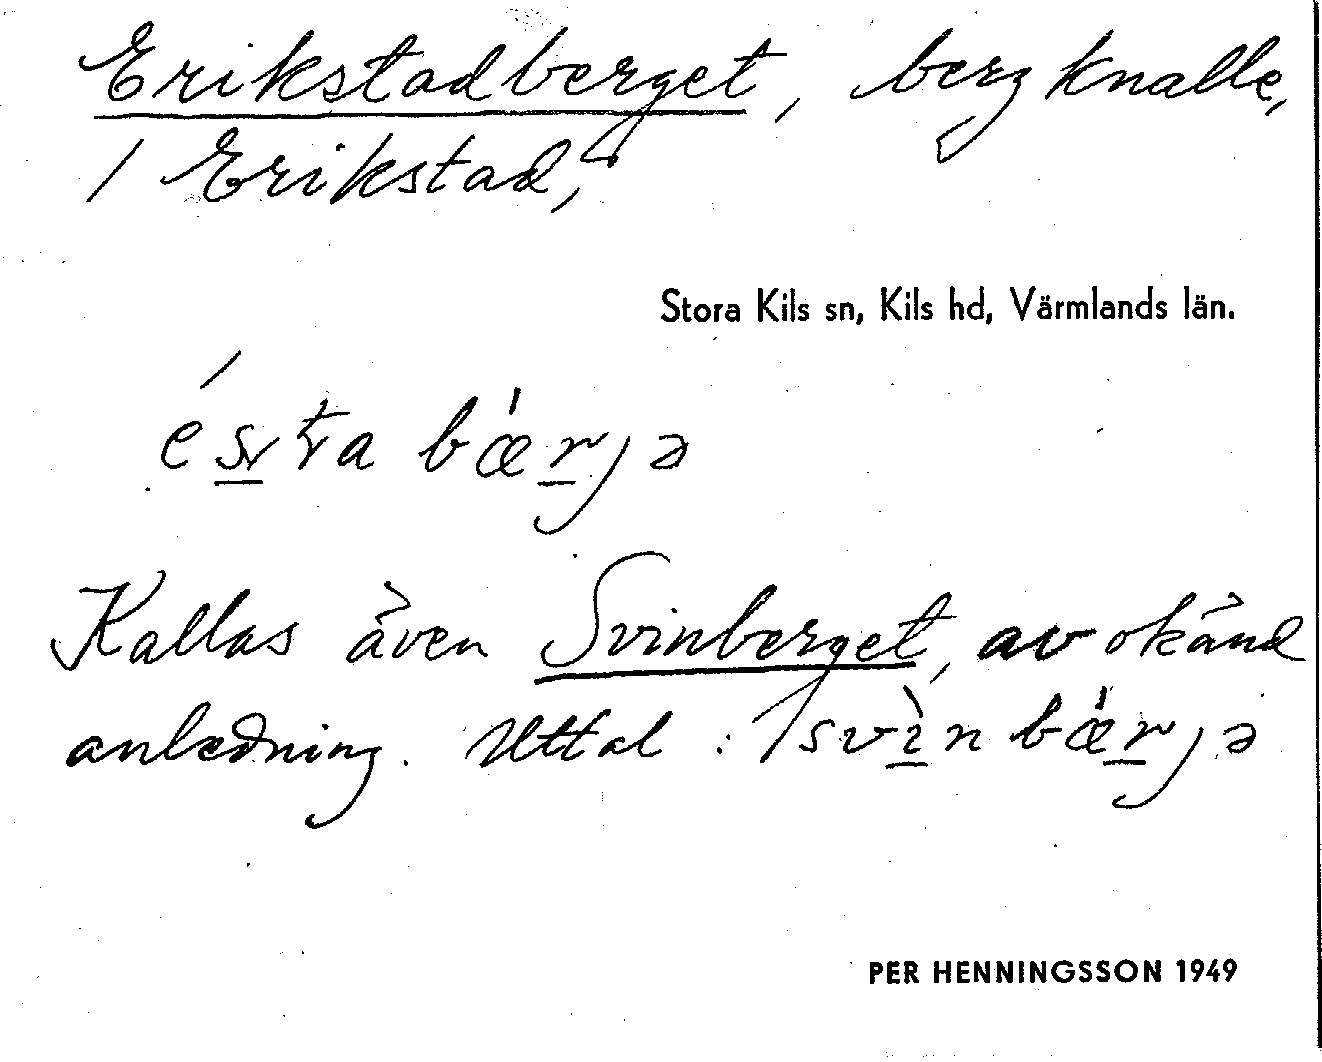 Erikstadberget, bergknalle,
/ Erikstad,
Stora Kils sn, Kils hd, Värmlands län.
bǽrjə
Kallas även Svinberget, av okänd
anledning. Uttal: svìn bǽrjə
PER HENNINGSSON 1949